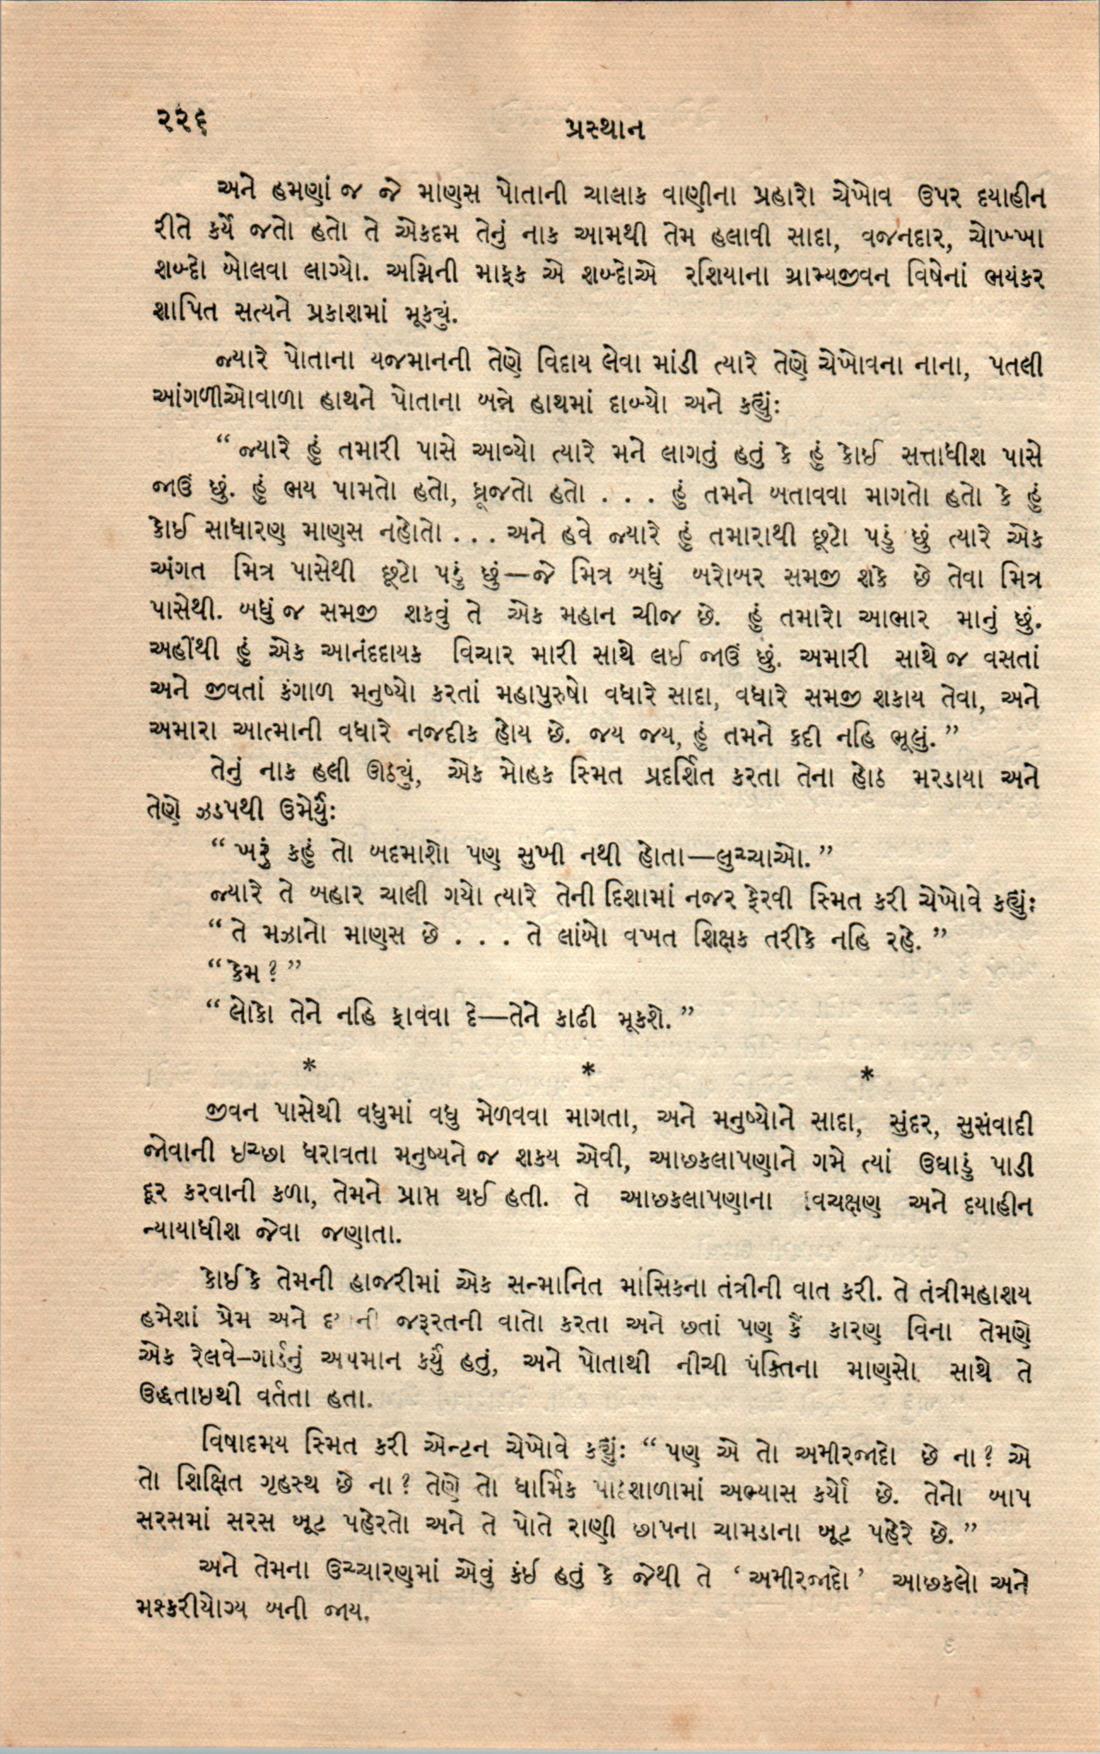 ૨૨૬
પ્રસ્થાન
અને હમણાં જ જે માણસ પોતાની ચાલાક વાણીના પ્રહારો ચેખોવ ઉપર દયાહીન
રીતે કર્યે જતો હતો તે એકદમ તેનું નાક આમથી તેમ હલાવી સાદા, વજનદાર, ચોખ્ખા
શબ્દો બોલવા લાગ્યો. અગ્નિની માફક એ શબ્દોએ રશિયાના ગ્રામ્યજીવન વિષેનાં ભયંકર
શાપિત સત્યને પ્રકાશમાં મૂક્યું.
જ્યારે પોતાના યજમાનની તેણે વિદાય લેવા માંડી ત્યારે તેણે ચેખોવના નાના, પતલી
આંગળીઓવાળા હાથને પોતાના બન્ને હાથમાં દાબ્યો અને કહ્યું:
“ જ્યારે હું તમારી પાસે આવ્યો ત્યારે મને લાગતું હતું કે હું કોઈ સત્તાધીશ પાસે
જાઉં છું. હું ભય પામતો હતો, ધ્રૂજતો હતો . . . હું તમને બતાવવા માગતો હતો કે હું
કોઈ સાધારણ માણસ નહોતો . . . અને હવે જ્યારે હું તમારાથી છૂટો પડું છું ત્યારે એક
અંગત મિત્ર પાસેથી છૂટો પડું છું—જે મિત્ર બધું બરોબર સમજી શકે છે તેવા મિત્ર
પાસેથી. બધું જ સમજી શકવું તે એક મહાન ચીજ છે. હું તમારો આભાર માનું છું.
અહીંથી હું એક આનંદદાયક વિચાર મારી સાથે લઈ જાઉં છું. અમારી સાથે જ વસતાં
અને જીવતાં કંગાળ મનુષ્યો કરતાં મહાપુરુષો વધારે સાદા, વધારે સમજી શકાય તેવા, અને
અમારા આત્માની વધારે નજદીક હોય છે. જય જય, હું તમને કદી નહિ ભૂલું. ”
તેનું નાક હલી ઊઠ્યું, એક મોહક સ્મિત પ્રદર્શિત કરતા તેના હોઠ મરડાયા અને
તેણે ઝડપથી ઉમેર્યું:
“ ખરું કહું તો બદમાશો પણ સુખી નથી હોતા—લુચ્ચાઓ. ”
જ્યારે તે બહાર ચાલી ગયો ત્યારે તેની દિશામાં નજર ફેરવી સ્મિત કરી ચેખોવે કહ્યું:
“ તે મઝાનો માણસ છે . . . તે લાંબો વખત શિક્ષક તરીકે નહિ રહે. ”
“ કેમ ? ”
“ લોકો તેને નહિ ફાવવા દે—તેને કાઢી મૂકશે. ”
* * *
જીવન પાસેથી વધુમાં વધુ મેળવવા માગતા, અને મનુષ્યોને સાદા, સુંદર, સુસંવાદી
જોવાની ઇચ્છા ધરાવતા મનુષ્યને જ શક્ય એવી, આછકલાપણાને ગમે ત્યાં ઉઘાડું પાડી
દૂર કરવાની કળા, તેમને પ્રાપ્ત થઈ હતી. તે આછકલાપણાના વિચક્ષણ અને દયાહીન
ન્યાયાધીશ જેવા જણાતા.
કોઈકે તેમની હાજરીમાં એક સન્માનિત માસિકના તંત્રીની વાત કરી. તે તંત્રીમહાશય
હમેશાં પ્રેમ અને જરૂરતની વાતો કરતા અને છતાં પણ કૈં કારણ વિના તેમણે
એક રેલવે–ગાર્ડનું અપમાન કર્યું હતું, અને પોતાથી નીચી પંક્તિના માણસો સાથે તે
ઉદ્ધતાઇથી વર્તતા હતા.
વિષાદમય સ્મિત કરી એન્ટન ચેખોવે કહ્યું: “ પણ એ તો અમીરજાદો છે ના ? એ
તો શિક્ષિત ગૃહસ્થ છે ના ? તેણે તો ધાર્મિક પાઠશાળામાં અભ્યાસ કર્યો છે. તેનો બાપ
સરસમાં સરસ બૂટ પહેરતો અને તે પોતે રાણી છાપના ચામડાના બૂટ પહેરે છે. ”
અને તેમના ઉચ્ચારણમાં એવું કંઈ હતું કે જેથી તે ‘ અમીરજાદો ’ આછકલો અને
મશ્કરીયોગ્ય બની જાય.